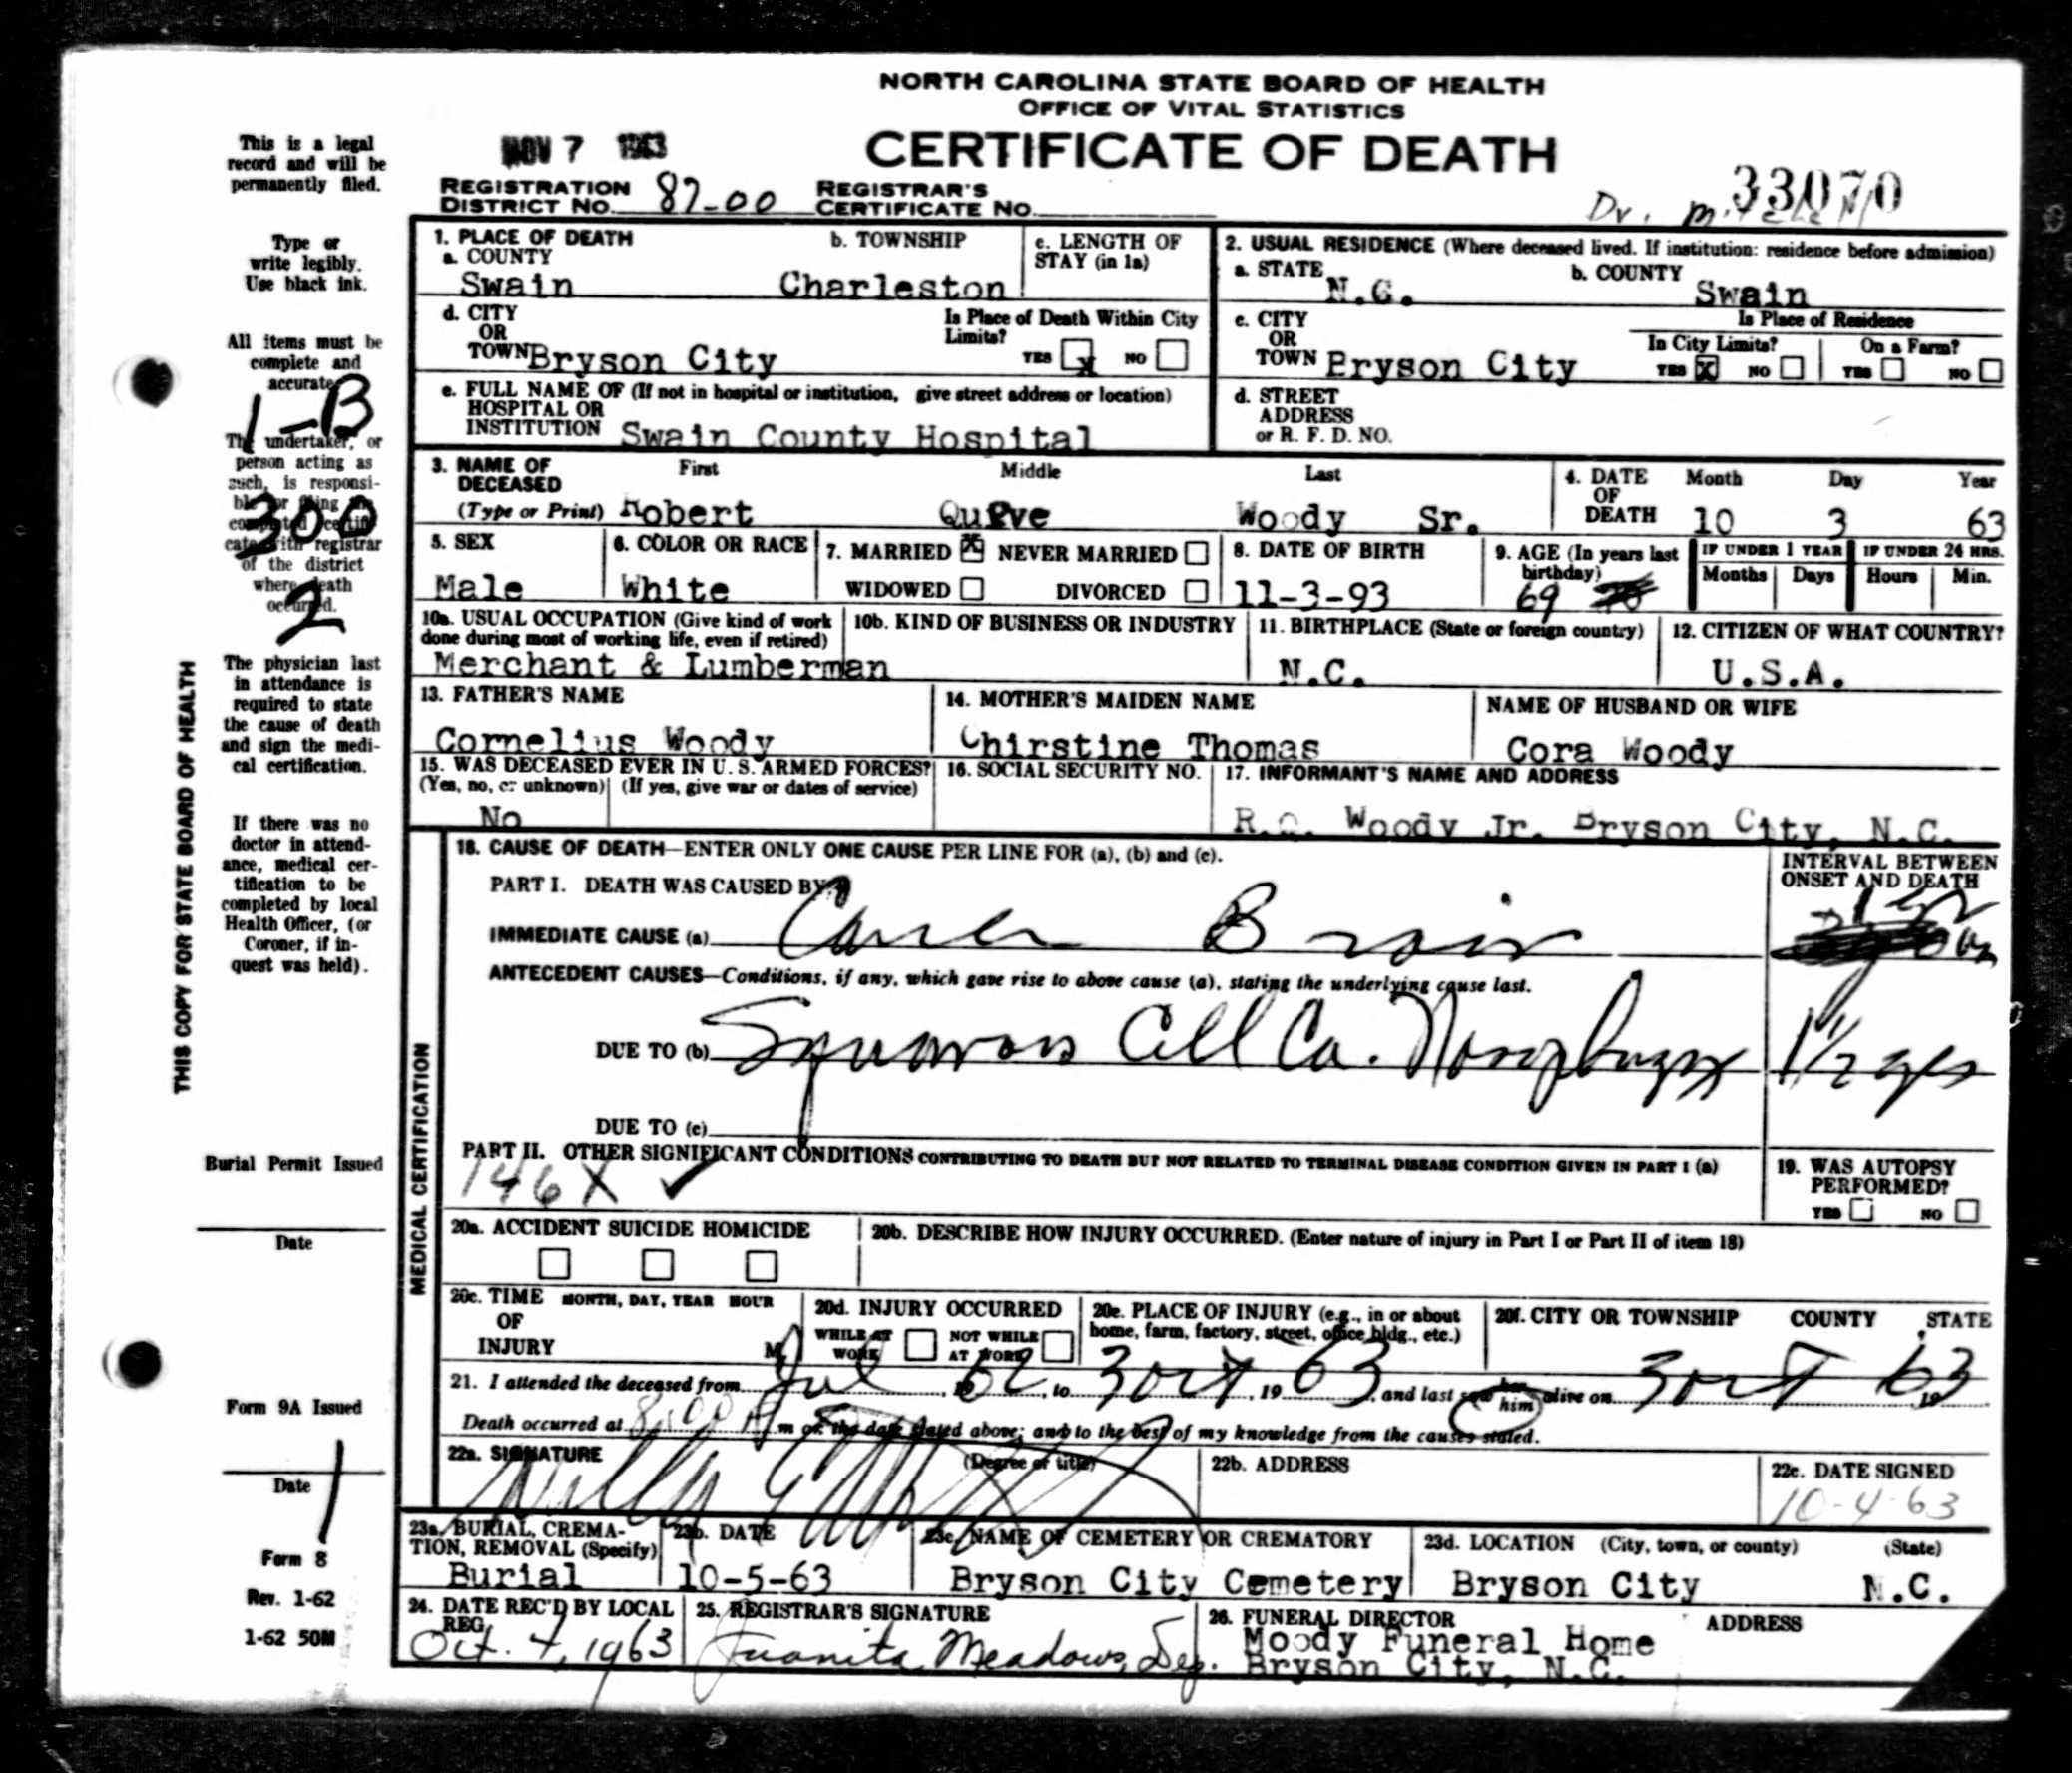 NORTH CAROLINA STATE BOARD OF HEALTH
OFFICE OF VITAL STATISTICS
CERTIFICATE OF DEATH
NOV 7 1963
33070
Dr.
REGISTRATION DISTRICT No. 87-00 REGISTRAR'S CERTIFICATE No.
This is a legal
record and will be
permanently filed.
Type or
write legibly.
Use black ink.
All items must be
complete and
accurate
1-B
The undertaker, or
person acting as
such, is responsi-
ble for filing the
300
completed certifi-
cate with registrar
of the district
where death
occurred.
2
The physician last
in attendance is
required to state
the cause of death
and sign the medi-
cal certification.
If there was no
doctor in attend-
ance, medical cer-
tification to be
completed by local
Health Officer, (or
Coroner, if in-
quest was held).
THIS COPY FOR STATE BOARD OF HEALTH
Burial Permit Issued
Date
Form 9A Issued
Date
Form 8
Rev. 1-62
1-62 50M
1. PLACE OF DEATH
a. COUNTY b. TOWNSHIP c. LENGTH OF STAY (in 1a)
Swain Charleston
2. USUAL RESIDENCE (Where deceased lived. If institution: residence before admission)
a. STATE b. COUNTY
N.C. Swain
d. CITY OR TOWN Bryson City
Is Place of Death Within City Limits? YES X NO
c. CITY OR TOWN Bryson City
Is Place of Residence
In City Limits? YES X NO On a Farm? YES NO
e. FULL NAME OF (If not in hospital or institution, give street address or location)
HOSPITAL OR
INSTITUTION Swain County Hospital
d. STREET
ADDRESS
or R. F. D. NO.
3. NAME OF DECEASED First Middle Last
(Type or Print) Robert Woody Sr.
4. DATE OF DEATH Month Day Year
10 3 63
5. SEX Male
6. COLOR OR RACE White
7. MARRIED X NEVER MARRIED
WIDOWED DIVORCED
8. DATE OF BIRTH 11-3-93
9. AGE (In years last birthday) 69
IF UNDER 1 YEAR Months Days
IF UNDER 24 HRS. Hours Min.
10a. USUAL OCCUPATION (Give kind of work
done during most of working life, even if retired)
Merchant & Lumberman
10b. KIND OF BUSINESS OR INDUSTRY
11. BIRTHPLACE (State or foreign country)
N.C.
12. CITIZEN OF WHAT COUNTRY?
U.S.A.
13. FATHER'S NAME
Cornelius Woody
14. MOTHER'S MAIDEN NAME
Chirstine Thomas
NAME OF HUSBAND OR WIFE
Cora Woody
15. WAS DECEASED EVER IN U. S. ARMED FORCES?
(Yes, no, or unknown) (If yes, give war or dates of service)
No
16. SOCIAL SECURITY NO.
17. INFORMANT'S NAME AND ADDRESS
R.Q. Woody Jr. Bryson City, N.C.
MEDICAL CERTIFICATION
18. CAUSE OF DEATH—ENTER ONLY ONE CAUSE PER LINE FOR (a), (b) and (c).
INTERVAL BETWEEN
ONSET AND DEATH
PART I. DEATH WAS CAUSED BY:
IMMEDIATE CAUSE (a) Cancer Brain
ANTECEDENT CAUSES—Conditions, if any, which gave rise to above cause (a), stating the underlying cause last.
DUE TO (b) Squamous Cell Ca. 1½ yrs
DUE TO (c)
PART II. OTHER SIGNIFICANT CONDITIONS CONTRIBUTING TO DEATH BUT NOT RELATED TO TERMINAL DISEASE CONDITION GIVEN IN PART I (a)
146X ✓
19. WAS AUTOPSY PERFORMED?
YES NO
20a. ACCIDENT SUICIDE HOMICIDE
20b. DESCRIBE HOW INJURY OCCURRED. (Enter nature of injury in Part I or Part II of item 18)
20c. TIME OF INJURY MONTH, DAY, YEAR HOUR M.
20d. INJURY OCCURRED
WHILE AT WORK NOT WHILE AT WORK
20e. PLACE OF INJURY (e.g., in or about
home, farm, factory, street, office bldg., etc.)
20f. CITY OR TOWNSHIP COUNTY STATE
21. I attended the deceased from Jul, 1962, to 3 Oct, 1963, and last saw him alive on 3 Oct 1963
Death occurred at 8:00 m on the date stated above; and to the best of my knowledge from the causes stated.
22a. SIGNATURE (Degree or title)
22b. ADDRESS
22c. DATE SIGNED
10-4-63
23a. BURIAL, CREMA-
TION, REMOVAL (Specify)
Burial
23b. DATE
10-5-63
23c. NAME OF CEMETERY OR CREMATORY
Bryson City Cemetery
23d. LOCATION (City, town, or county) (State)
Bryson City N.C.
24. DATE REC'D BY LOCAL REG.
Oct. 4, 1963
25. REGISTRAR'S SIGNATURE
Juanita Meadows, Dep.
26. FUNERAL DIRECTOR ADDRESS
Moody Funeral Home
Bryson City, N.C.